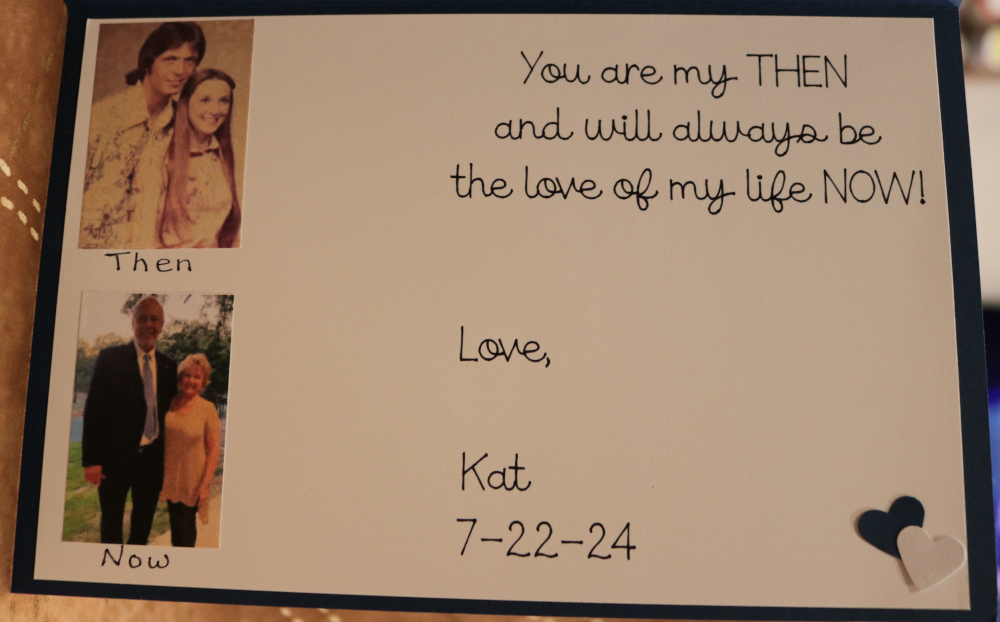 You are my THEN
and will always be
the love of my life NOW!
Then
Love,
Kat
7-22-24
Now